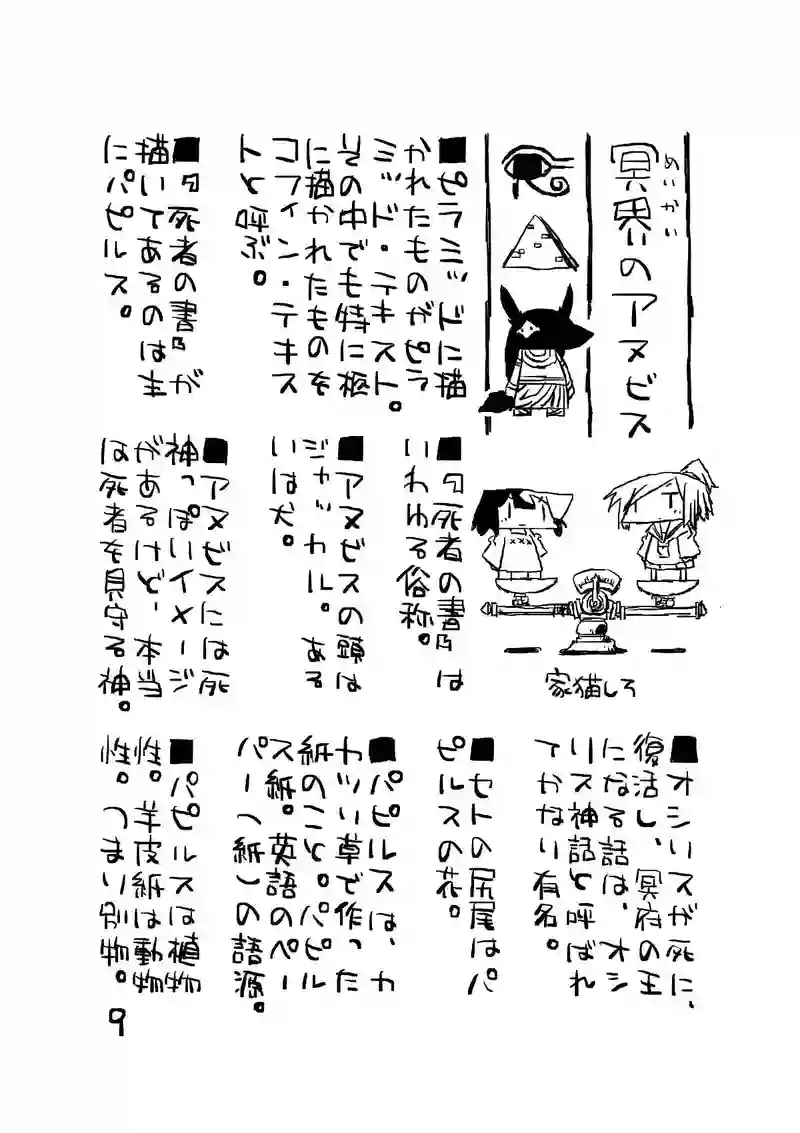 冥界のアヌビス
めいかい
■ピラミッドに描
かれたものがピラ
ミッド・テキスト。
その中でも特に柩
に描かれたものを
コフィン・テキス
トと呼ぶ。
■『死者の書』が
描いてあるのは主
にパピルス。
家猫しろ
■『死者の書』は
いわゆる俗称。
■アヌビスの頭は
ジャッカル。ある
いは犬。
■アヌビスには死
神っぽいイメージ
があるけど、本当
は死者を見守る神。
■オシリスが死に、
復活し、冥府の王
になる話は、オシ
リス神話と呼ばれ
てかなり有名。
■セトの尻尾はパ
ピルスの花。
■パピルスは、カ
カツい草で作った
紙のこと。パピル
ス紙。英語のペー
パー（紙）の語源。
■パピルスは植物
性。羊皮紙は動物
性。つまり別物。
9